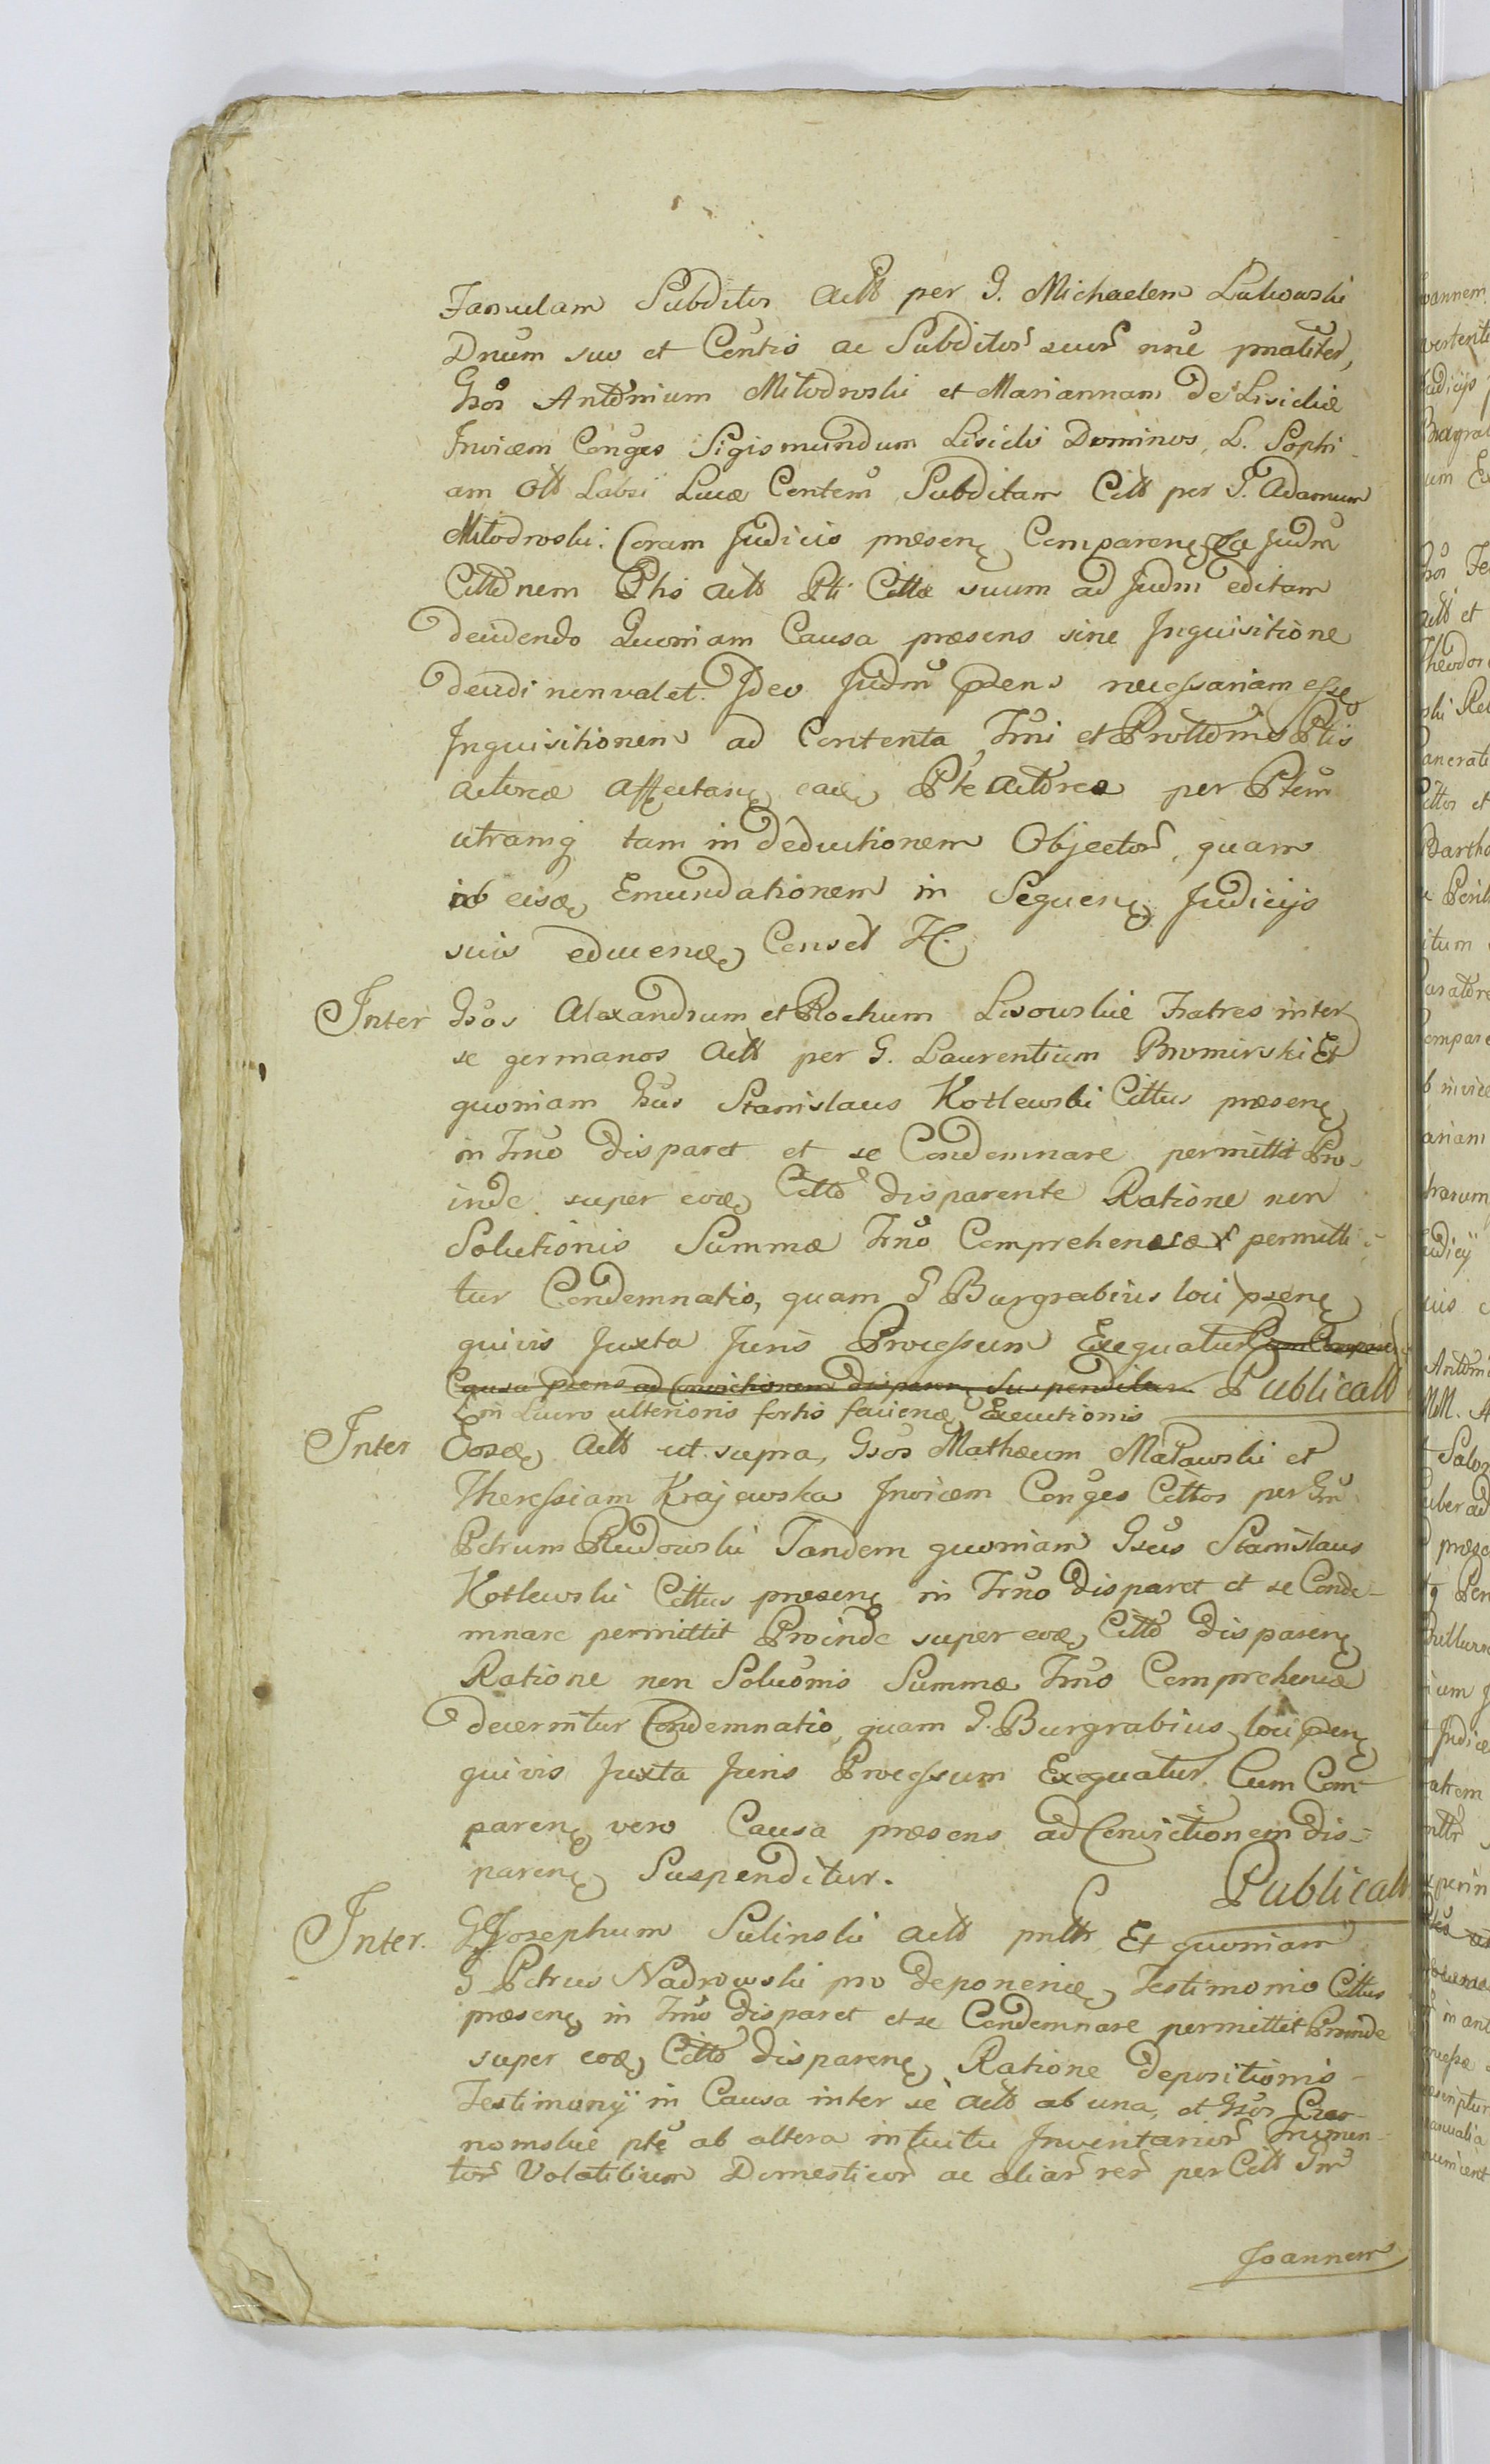 Famulam Subditos Actt per G. Michaelem Lukowski
Dnum suo et Contis ac Subditor suor nne pnaliter,
Gsos Antonium Mlodroski et Mariannam de Lisickie
Invicem Conges Sigismundum Lisicki Dominos, L. Sophi-
am Ott Labsi Luca Contem Subditam Citt per G. Adamum
Mlodroski. Coram Judiciis præsen Comparen Judm
Cittonem Actt Pti Cittæ suum ad Judm editam
decidendo Quoniam Causa præsens sine Inquisitione
decidi non valet. Ideo Judm præns necessariam esse
Inquisitionem ad Contenta Trmi et Ptis
actoreæ affectan Pte actoreæ per Ptem
utramq tam in deductionem Objector, quam
ab Emundationem in Sequen Judicijs
suis Censet H.
Inter Gsos Alexandrum et Rochum Lisowskie Fratres inter
se germanos Actt per G. Laurentium Bromirski Et
quoniam Gsus Stanislaus Kotlewski Cittus præsen
in Trno disparet et se Condemnare permittit Pro-
inde super eod Citto disparente Ratione non
Solutionis Summæ Trno Comprehensæ permitti-
tur Condemnatio, quam G Burgrabius loci præsen
quivis Juxta Juris Processum Exequatur Cum Comparen
Causa præns ad Convictionem disparen Suspenditur Publicatt
in Lucro ulterioris fortis faciend Executionis
Inter Eosd Actt ut supra, Gsos Mathæum Malawski et
Theressiam Krajewska Invicem Conges Cittos per Gm
Petrum Rudowski Tandem quoniam Gsus Stanislaus
Kotlewski Cittus præsen in Trno disparet et se Conde-
mnare permittit Proinde super eod Citto disparen
Ratione non Soluonis Summæ Trno Comprehensæ
decernitur Condemnatio, quam G. Burgrabius loci præsen
quivis Juxta Juris Processum Exequatur. Cum Com-
paren vero Causa præsens ad Convictionem dis-
paren Suspenditur. Publicatt
Inter. G Josephum Sulinski Actt pnltr Et quoniam
G Petrus Nadrowski pro deponend Testimonio Cittus
præsen in Trno disparet et se Condemnare permittit Proinde
super eod Citto disparen Ratione depositionis
Testimonij in Causa inter se Actt ab una, et Gsos Czar-
nomskie pte ab altera intuitu Inventarior Frumen-
tor Volatilium Domesticor ac aliar rer per Citt Gm
Joannem